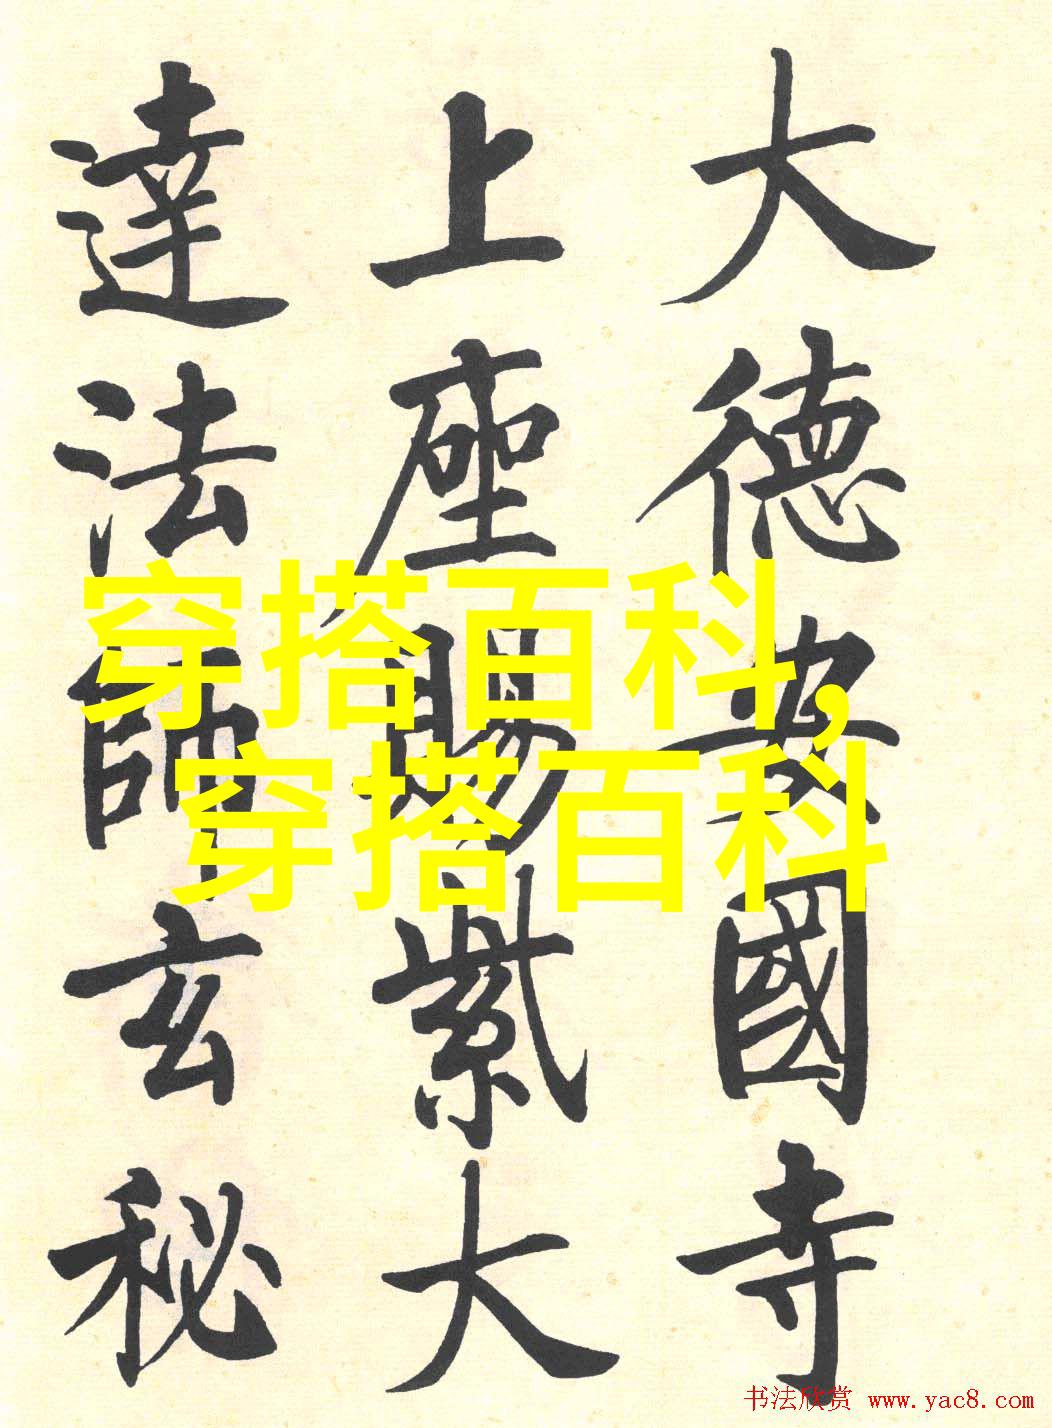 大德安國寺
上座賜紫大
達法師玄秘
穿搭百科,
穿搭百科
书法欣赏 www.yac8.com